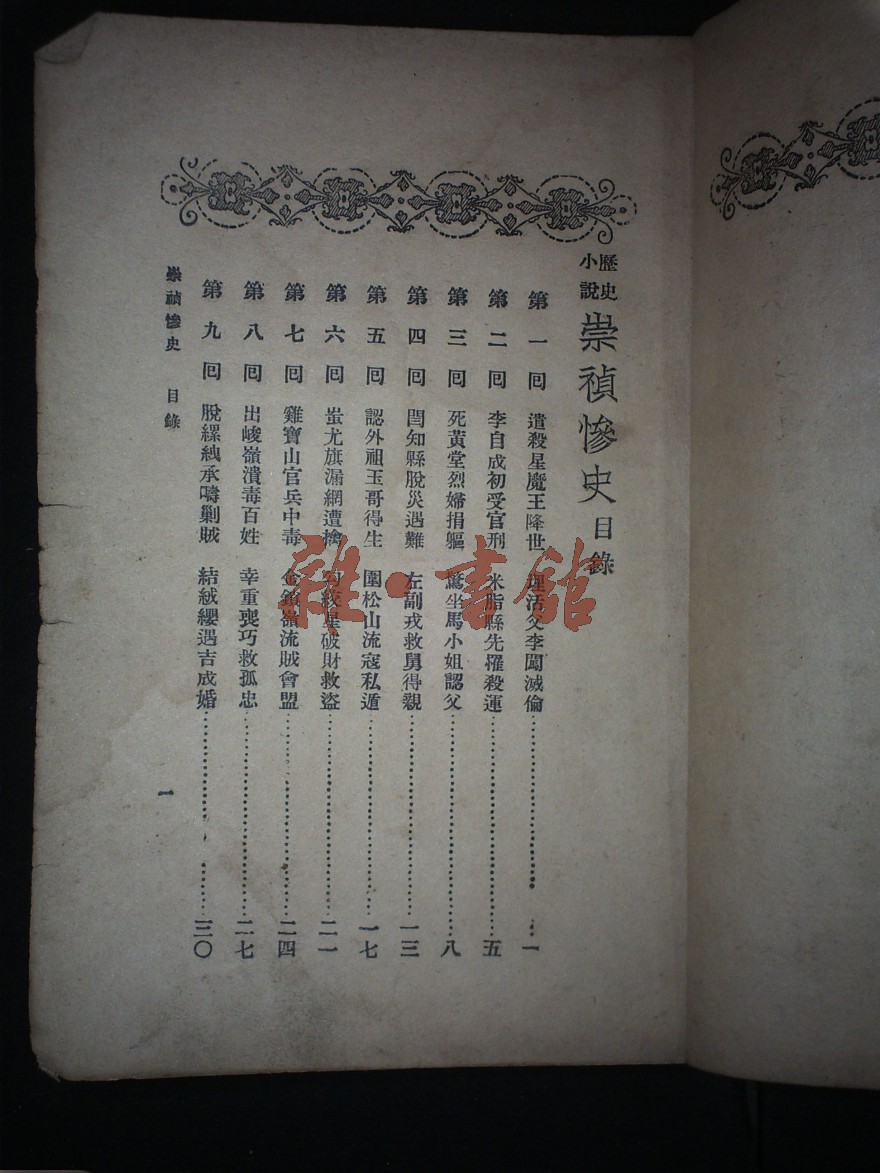 歷史小說 崇禎慘史目錄
第一回 遣殺星魔王降世 埋活父李闖滅倫 一
第二回 李自成初受官刑 米脂縣先罹殺運 五
第三回 死黃堂烈婦捐軀 驚坐馬小姐認父 八
第四回 閆知縣脫災遇難 左副戎救舅得親 一三
第五回 認外祖玉哥得生 圍松山流寇私遁 一七
第六回 蚩尤旗漏網遭擒 絞星破財救盜 二一
第七回 雞寶山官兵中毒 金鎖嶺流賊會盟 二四
第八回 出峻嶺潰毒百姓 幸重喪巧救孤忠 二七
第九回 脫縲紲承疇剿賊 結絨纓遇吉成婚 三〇
崇禎慘史 目錄 一
雜·書館